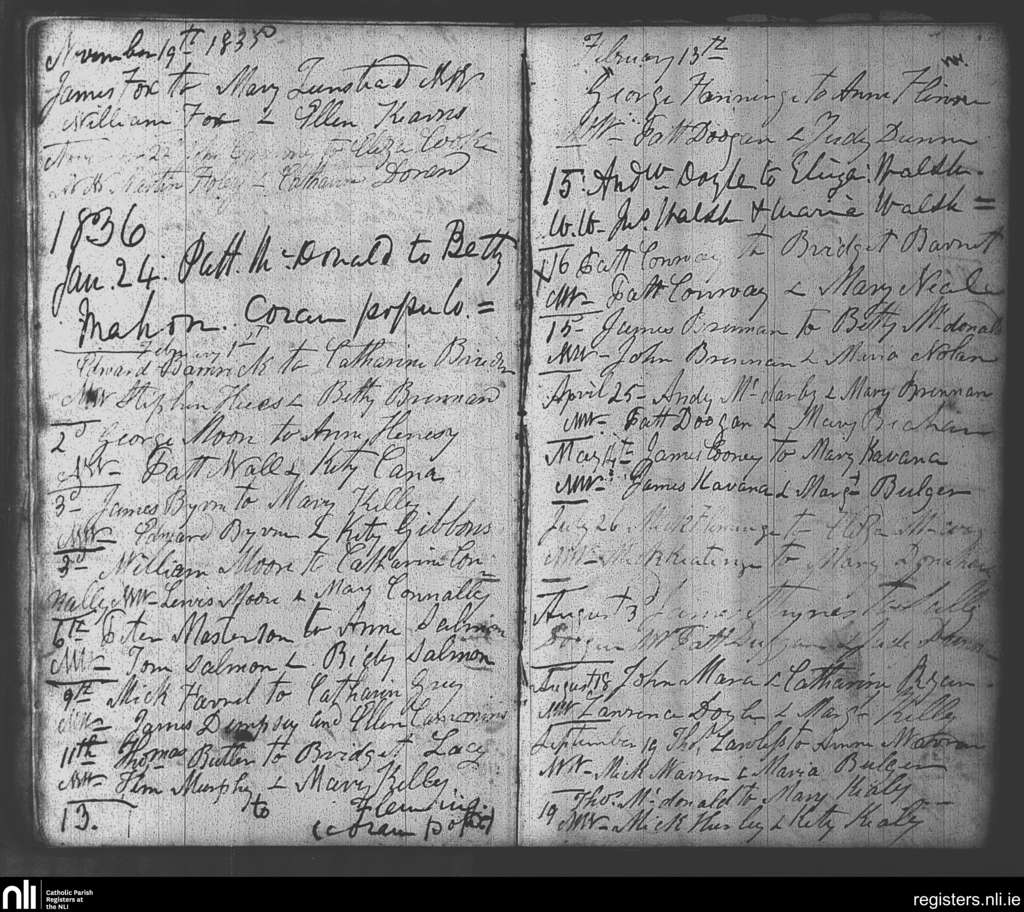 November 19th 1835
James Fox to Mary Tunstead WW
William Fox & Ellen Kearns
22 to Eliza Cooke
WW Martin Foley & Catharin Doran
1836
Jan. 24. Patt. McDonald to Betty
Mahon. Coram populo. =
February 1st
Edward to Catharine
WW Stephen & Betty Brennan
2d George Moon to Anne Henesy
WW- Patt Wall & Kity Cana
3- James Byrn to Mary Killey
WW- Edward Byrne & Kity Gibbons
3d William Moore to Catharin Con
nalley WW- Lewis Moore & Mary Connalley
6th Peter Masterson to Anne Salmon
WW- Tom Salmon & Bidy Salmon
9th Mick Farrel to Catharin Grey
WW- James Dempsey and Ellen
11th Thomas Butler to Bridget Lacy
WW- Tim Murphy & Mary Killey
13. to Fleming.
(coram pop

February 13th
George Fanninge to Anne
WW- Patt Doogan & Judy Dunn
15. Andw Doyle to Eliza: Walsh.
W.W- Jno. Walsh & Maria Walsh =
16 Patt Conway to Bridget Barnet
WW- Patt Conway & Mary Neale
15- James Brennan to Betty Mcdonald
WW- John Brennan & Maria Nolan
April 25- Andy Mcdarby & Mary Brennan
WW- Patt Doogan & Mary
May 4th James Cooney to Mary Kavana
WW- James Kavana & Margt Bulger
July 26 Mick to Eliza
WW- Mick Keatinge to Mary
August 3d Thomas Hynes to
Doogan WW Patt Duggan & Jude
August 8 John Mara & Catharine Ryan
WW Lawrence Doyle & Margt Killey
September 19 Thos Lawless to Anne Warran
WW- Mick Warren & Maria Bulger
Thos. Mcdonald to Mary Kealy
19 WW- Mick Hurley & Kity Kealy
nli
Catholic Parish
Registers at
the NLI
registers.nli.ie